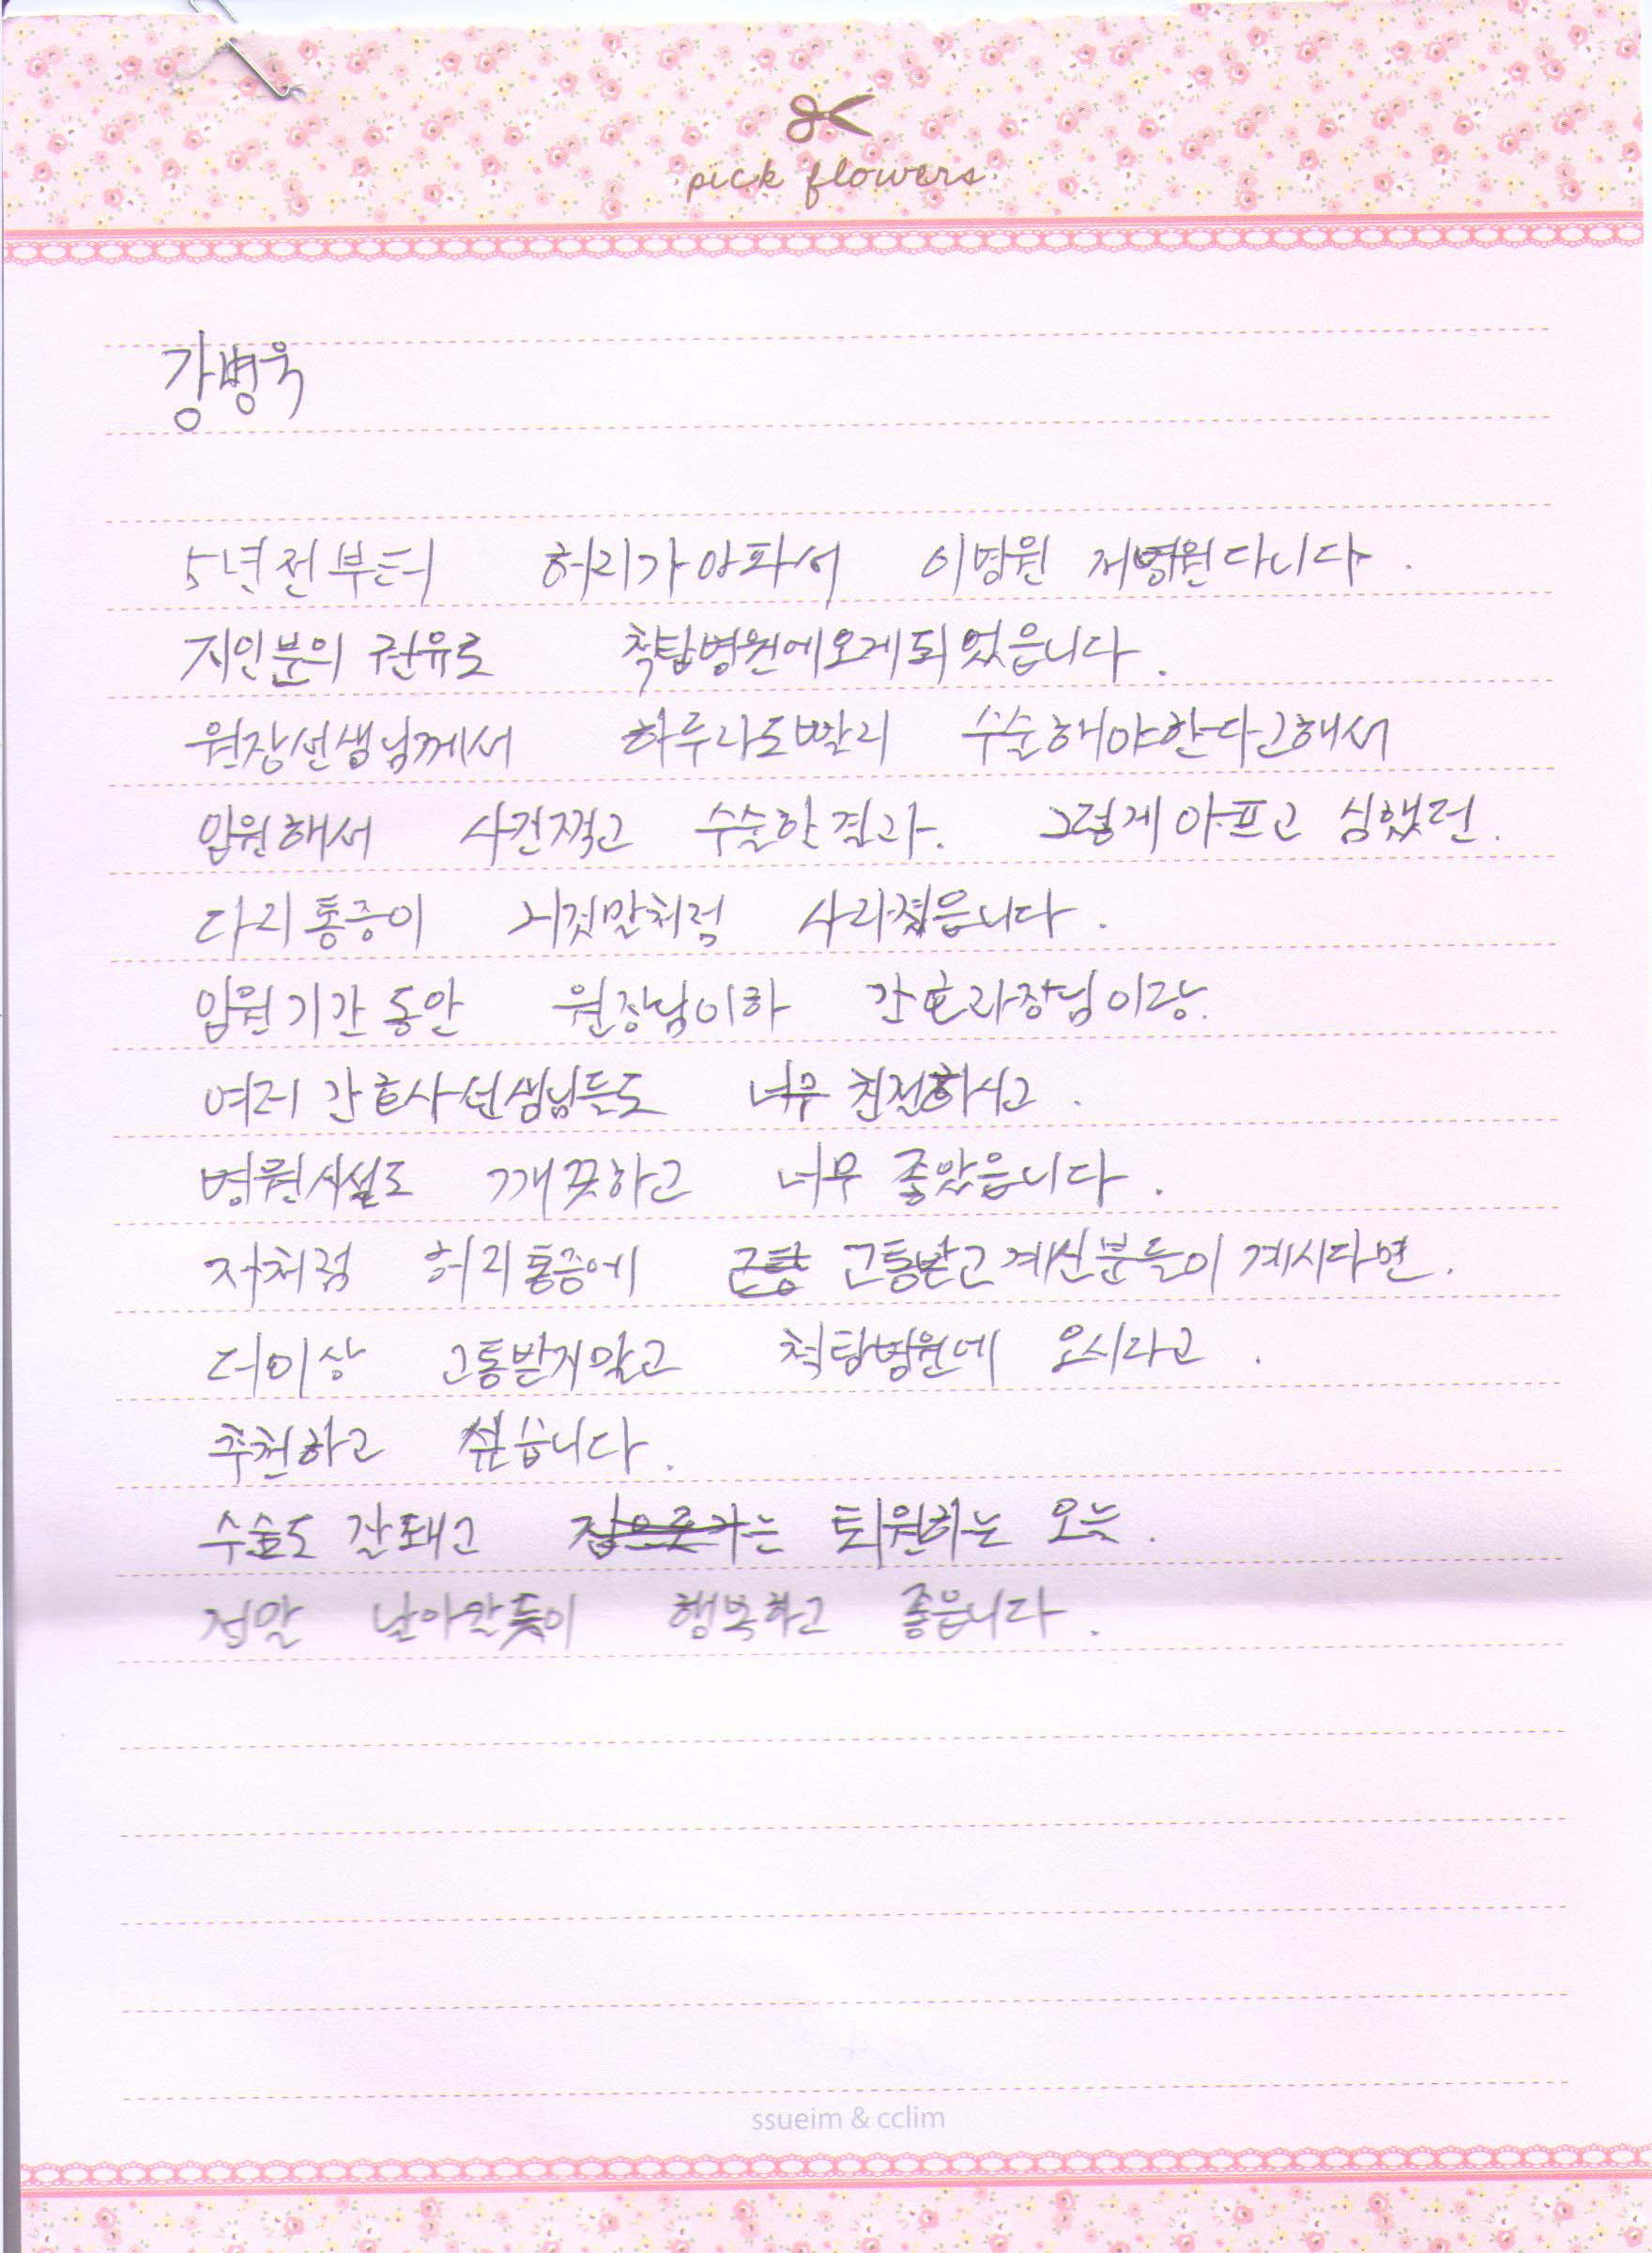 pick flowers
강병욱
5년전부터 허리가아파서 이병원 저병원다니다.
지인분의 권유로 척탑병원에오게되었읍니다.
원장선생님께서 하루라도빨리 수술해야한다고해서
입원해서 사진찍고 수술한결과. 그렇게아프고 심했던.
다리통증이 거짓말처럼 사라졌읍니다.
입원기간동안 원장님이하 간호과장님이랑.
여러 간호사선생님들도 너무 친절하시고.
병원시설도 깨끗하고 너무 좋았읍니다.
저처럼 허리통증에 고통받고계신분들이 계시다면.
더이상 고통받지말고 척탑병원에 오시라고.
추천하고 싶습니다.
수술도 잘돼고 집으로가는 퇴원하는 오늘.
정말 날아갈듯이 행복하고 좋읍니다.
ssueim & cclim